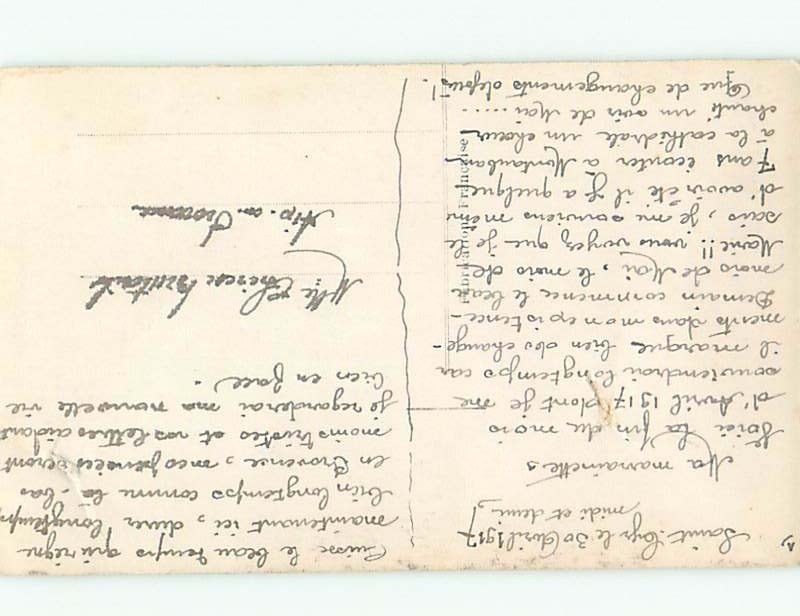 Saint-Cyr le 30 Avril 1917
midi et demi
Ma marrainette
Voici la fin du mois
d'Avril 1917 dont je me
souviendrai longtemps car
il marque bien des change-
ments dans mon existence -
Demain commence le beau
mois de Mai, le mois de
Marie!! vous voyez que je
sais, je me souviens même
d'avoir été il y a quelque
7 ans écouter à Montauban
à la cathédrale un chœur
chanté un soir de Mai .....
Que de changements depuis!
Puisse le beau temps qui règne
maintenant ici, durer longtemps
bien longtemps comme là-bas
en Provence, mes pensées seront
moins tristes et vos lettres aidant
je regarderai ma nouvelle vie
bien en face.
Melle Thérèse
Aix-en-Provence
Fabrication Française